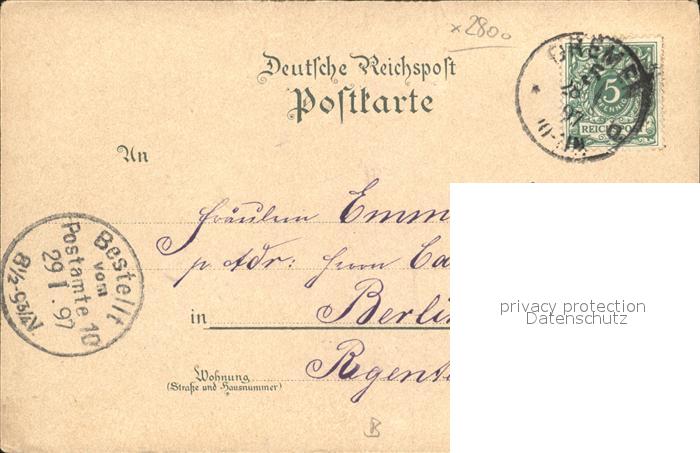 x 2800
Deutsche Reichspost
Postkarte
BREMEN
97
5
PFENNIG
REICHSPOST
An
Fräulein Emm
p Adr: Herrn Ca
in Berlin
Regent
Wohnung
(Straße und Hausnummer)
Bestellt
vom
Postamte 10
29 1. 97
8½-9½N
privacy protection
Datenschutz
B